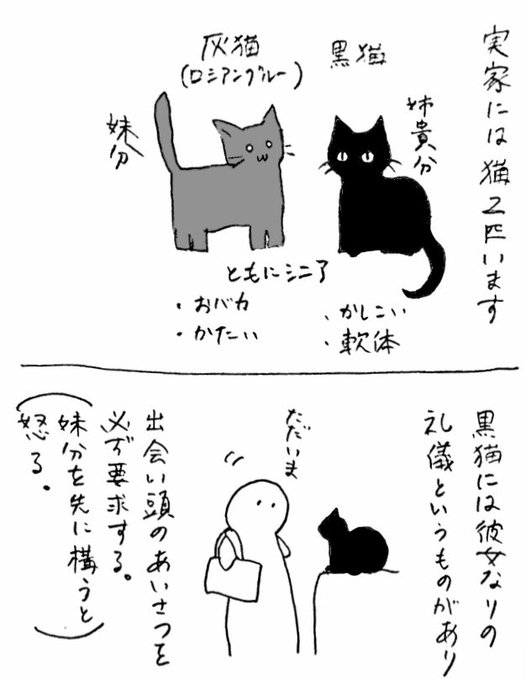 実家には猫2匹います
黒猫
姉貴分
灰猫
(ロシアンブルー)
妹分
ともにシニア
・かしこい
・軟体
・おバカ
・かたい
黒猫には彼女なりの
礼儀というものがあり
ただいま
出会い頭のあいさつを
必ず要求する。
(妹分を先に構うと
怒る。)